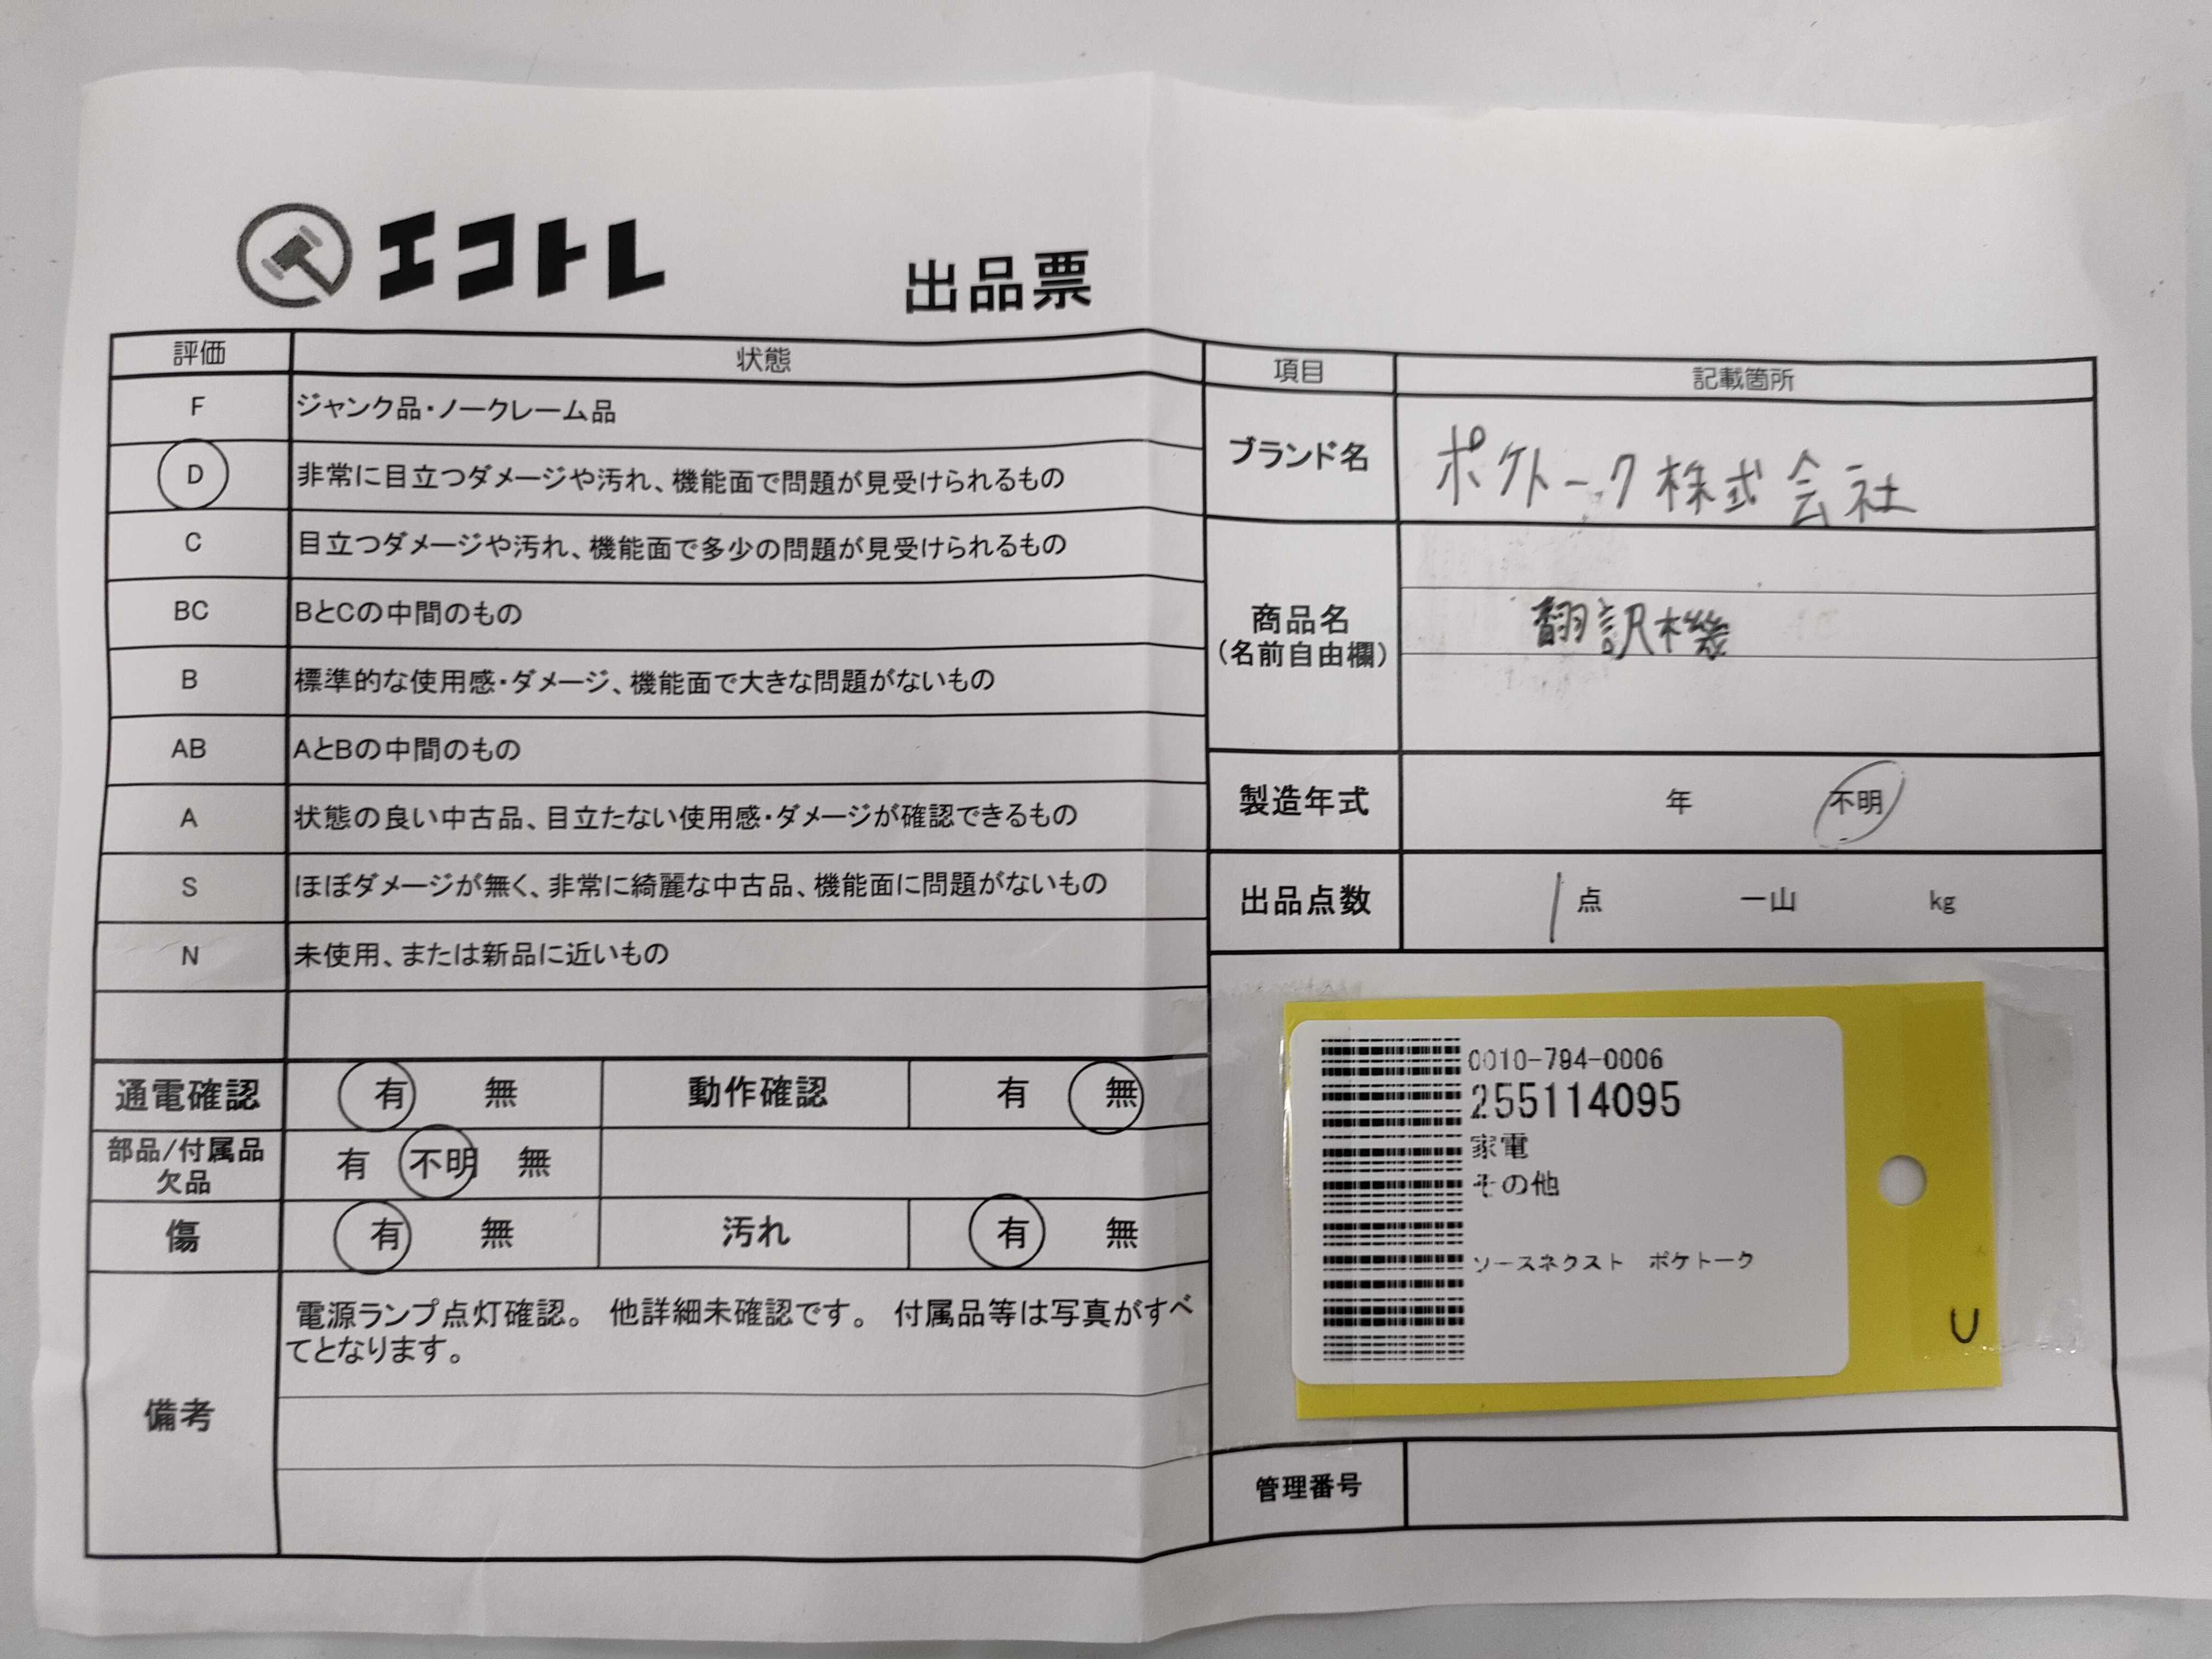 エコトレ
出品票
評価 状態
F ジャンク品・ノークレーム品
D 非常に目立つダメージや汚れ、機能面で問題が見受けられるもの
C 目立つダメージや汚れ、機能面で多少の問題が見受けられるもの
BC BとCの中間のもの
B 標準的な使用感・ダメージ、機能面で大きな問題がないもの
AB AとBの中間のもの
A 状態の良い中古品、目立たない使用感・ダメージが確認できるもの
S ほぼダメージが無く、非常に綺麗な中古品、機能面に問題がないもの
N 未使用、または新品に近いもの
通電確認 有 無 動作確認 有 無
部品/付属品
欠品 有 不明 無
傷 有 無 汚れ 有 無
備考
電源ランプ点灯確認。 他詳細未確認です。 付属品等は写真がすべ
てとなります。
項目 記載箇所
ブランド名 ポケトーク株式会社
商品名
(名前自由欄)
翻訳機
製造年式 年 不明
出品点数 1点 一山 kg
0010-794-0006
255114095
家電
その他
ソースネクスト ポケトーク
U
管理番号